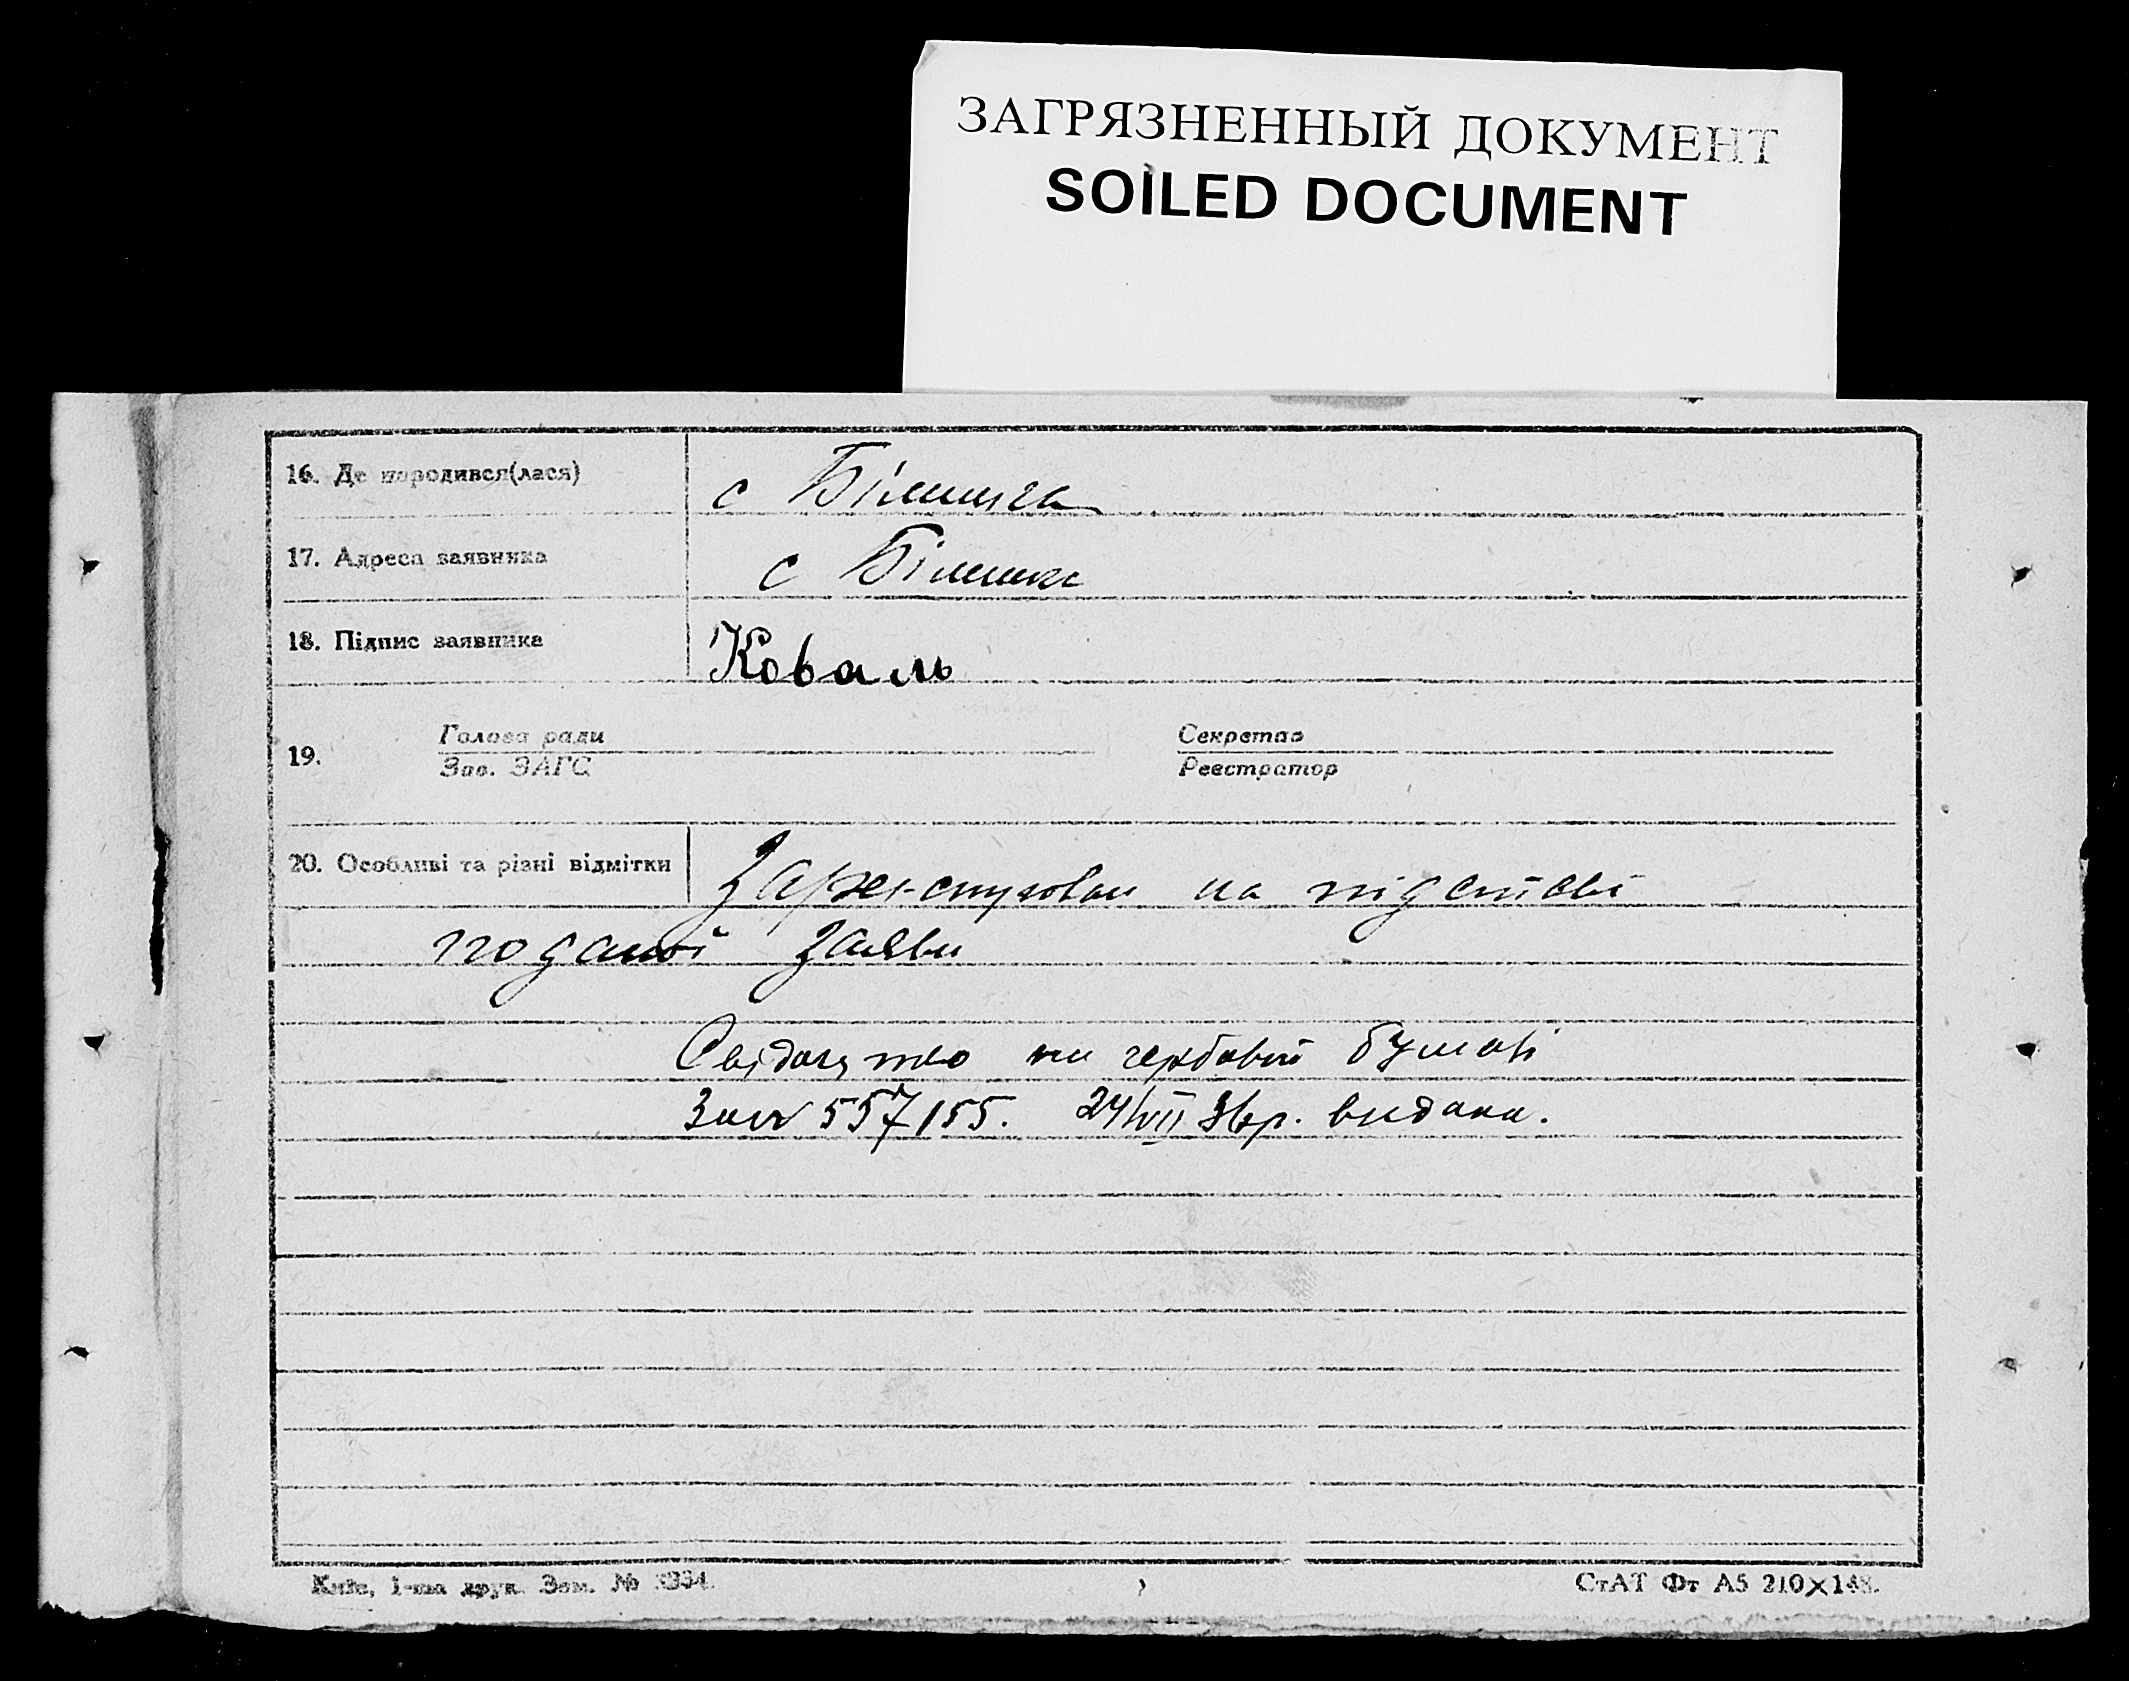 ЗАГРЯЗНЕННЫЙ ДОКУМЕНТ
SOILED DOCUMENT
16. Де народився(лася)
с
17. Адреса заявника
с
18. Підпис заявника
Коваль
19.
Голова ради
Зав. ЗАГС
Секретар
Реєстратор
20. Особливі та різні відмітки
на підставі
поданої заяви
Свідоцтво на гербовій бумазі
557155. 24/VII 36р. видана.
Київ, 1-ша друк. Зам. №
СтАТ Фт А5 210×148.